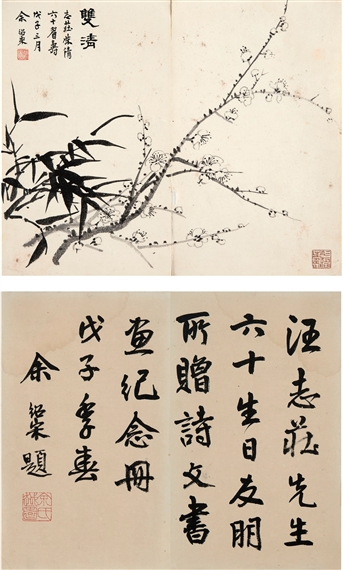 雙清
志莊唐清
六十眉壽
戊子三月
余紹宋
汪志莊先生
六十生日友朋
所贈詩文書
畫紀念冊
戊子季春
余紹宋題